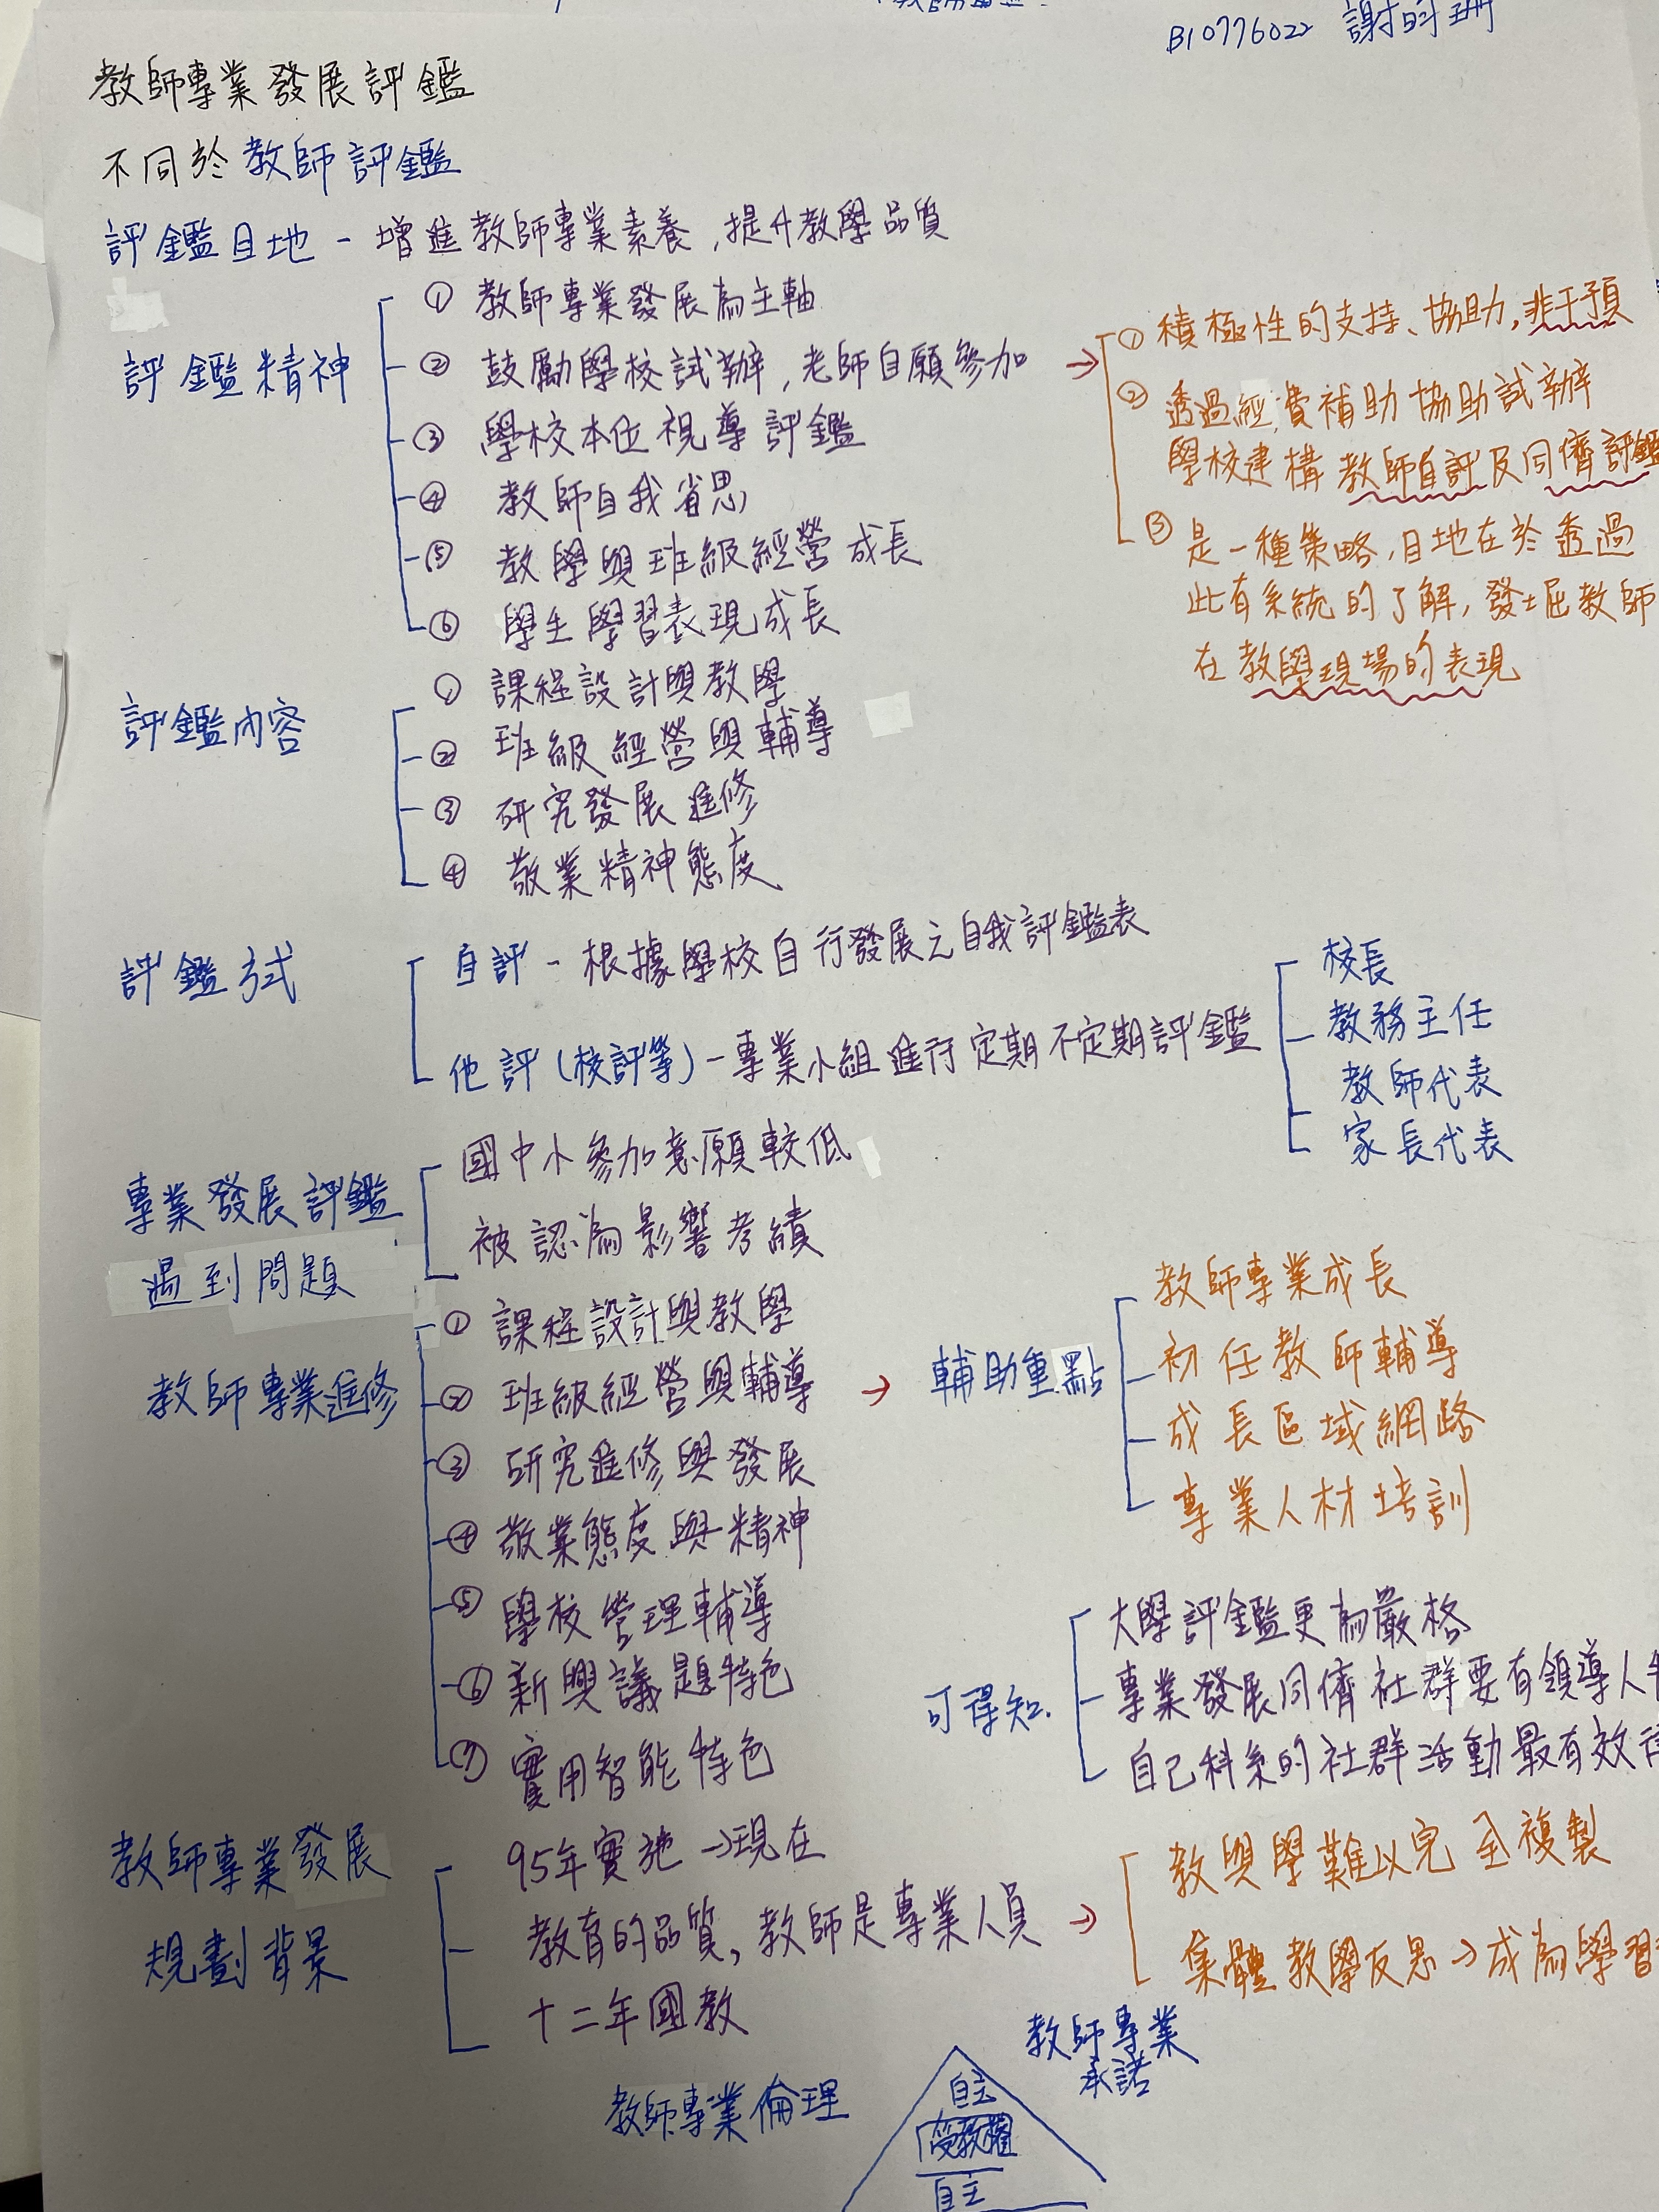 B10776022 謝
教師專業發展評鑑
不同於教師評鑑
評鑑目地 - 增進教師專業素養,提升教學品質
評鑑精神
① 教師專業發展為主軸
② 鼓勵學校試辦,老師自願參加 →
③ 學校本位視導評鑑
④ 教師自我省思
⑤ 教學與班級經營成長
⑥ 學生學習表現成長
① 積極性的支持、協助,非干預
② 透過經費補助協助試辦
學校建構教師自評及同儕評鑑
③ 是一種策略,目地在於透過
此有系統的了解,發掘教師
在教學現場的表現
評鑑內容
① 課程設計與教學
② 班級經營與輔導
③ 研究發展進修
④ 敬業精神態度
評鑑方式
自評 - 根據學校自行發展之自我評鑑表
他評(校評等) - 專業小組進行定期不定期評鑑
校長
教務主任
教師代表
家長代表
專業發展評鑑
遇到問題
國中小參加意願較低
被認為影響考績
教師專業進修
① 課程設計與教學
② 班級經營與輔導 →
③ 研究進修與發展
④ 敬業態度與精神
⑤ 學校管理輔導
⑥ 新興議題特色
⑦ 實用智能特色
輔助重點
教師專業成長
初任教師輔導
成長區域網路
專業人材培訓
可得知
大學評鑑更為嚴格
專業發展同儕社群要有領導人
自己科系的社群活動最有效
教師專業發展
規劃背景
95年實施→現在
教育的品質,教師是專業人員 →
十二年國教
教與學難以完全複製
集體教學反思→成為學習
教師專業倫理
教師專業
承諾
自主
受教權
自主